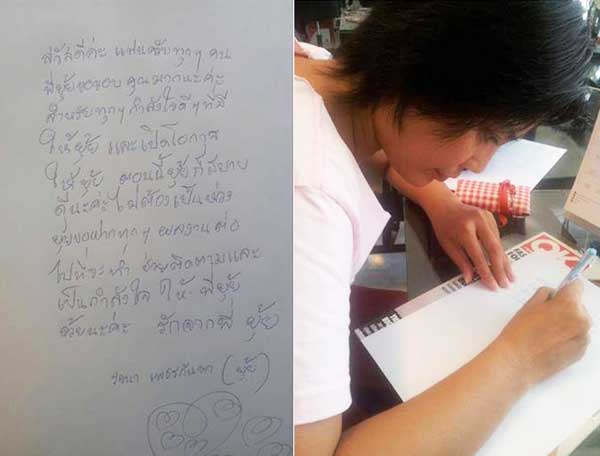 สวัสดีค่ะ แฟนคลับทุกๆ คน
พี่ยุ้ยขอขอบคุณมากนะค่ะ
สำหรับทุกๆ กำลังใจดีๆ ที่มี
ให้ยุ้ย และเปิดโอกาส
ให้ยุ้ย ตอนนี้ยุ้ยก็สบาย
ดีนะค่ะ ไม่ต้องเป็นห่วง
ยุ้ยขอฝากทุกๆ ผลงานต่อ
ไปที่จะทำ ช่วยติดตามและ
เป็นกำลังใจ ให้ พี่ยุ้ย
ด้วยนะค่ะ รักจากพี่ ยุ้ย
รจนา เพชรกันหา (ยุ้ย)